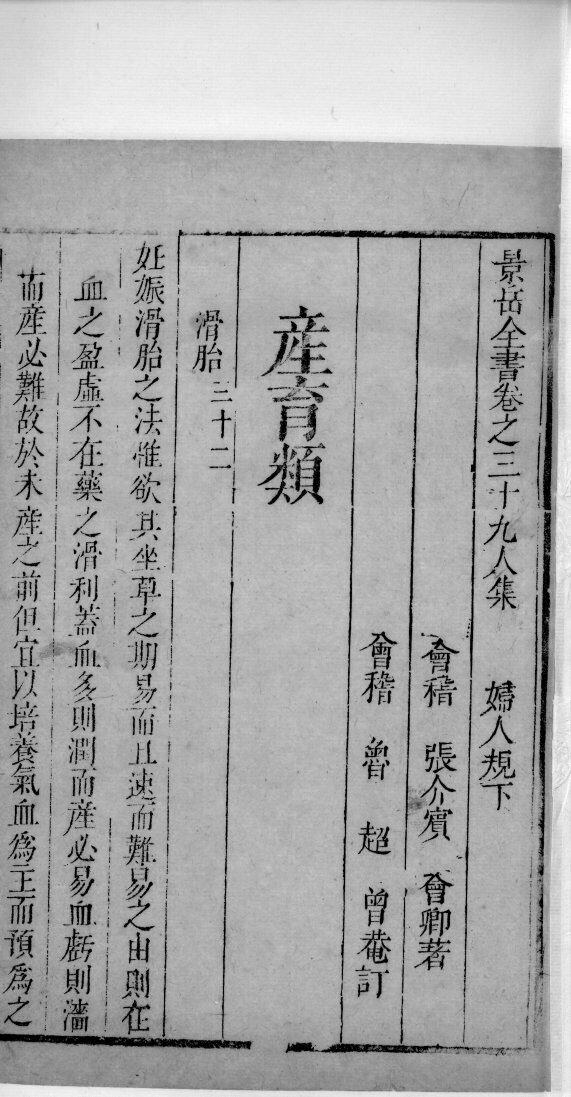 景岳全書卷之三十九人集　婦人規下
會稽　張介賓　會卿著
會稽　魯　超　曾菴訂
産育類
滑胎三十二
妊娠滑胎之法惟欲其坐草之期易而且速而難易之由則在
血之盈虛不在藥之滑利蓋血多則潤而産必易血虧則濇
而産必難故於未産之前但宜以培養氣血爲主而預爲之